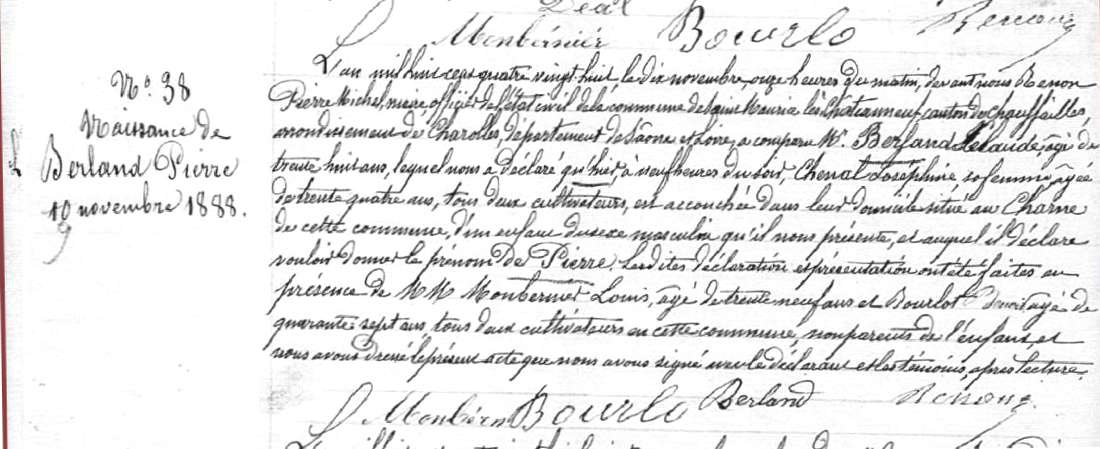 L Monbernier Bourlo Renon
N° 38
Naissance de
Berland Pierre
10 novembre 1888.
9
L'an mil huit cent quatre vingt huit, le dix novembre, onze heures du matin, devant nous Renon
Pierre Michel, maire officier de l'état civil de la commune de Saint Maurice lès Châteauneuf, canton de Chauffailles,
arrondissement de Charolles, département de Saône et Loire, a comparu Mr. Berland Claude, âgé de
trente huit ans, lequel nous a déclaré qu'hier, à neuf heures du soir, Chenal Joséphine, sa femme, âgée
de trente quatre ans, tous deux cultivateurs, est accouchée dans leur domicile situé au Charne
de cette commune, d'un enfant du sexe masculin qu'il nous présente, et auquel il déclare
vouloir donner le prénom de Pierre. Les dites déclaration et présentation ont été faites en
présence de MM Monbernier Louis, âgé de trente neuf ans et Bourlot âgé de
quarante sept ans tous deux cultivateurs en cette commune, non parents de l'enfant, et
nous avons dressé le présent acte que nous avons signé avec le déclarant et les témoins, après lecture.
L Monbern Bourlo Berland Renon